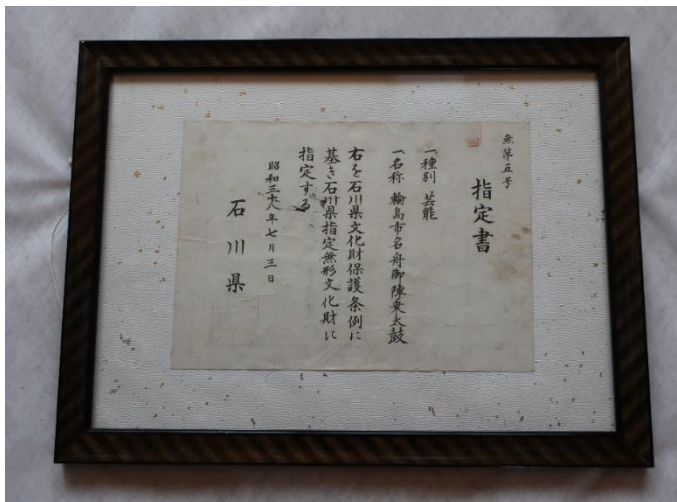 無第五号
指定書
一種別 芸能
一名称 輪島市名舟御陣乗太鼓
右を石川県文化財保護条例に
基き石川県指定無形文化財に
指定する
昭和三十八年七月三日
石川県